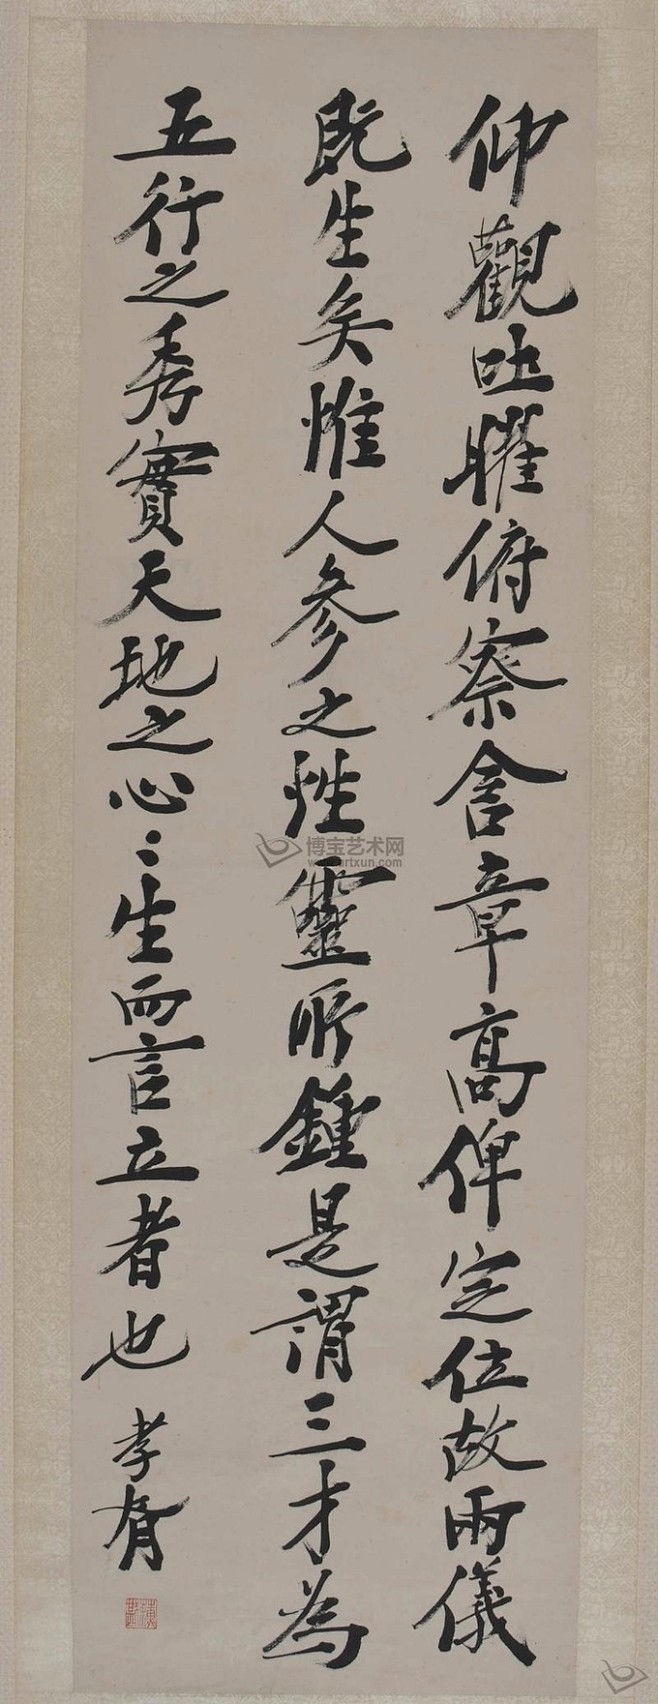 仰觀吐曜俯察含章高俾定位故兩儀
既生矣惟人參之性靈所鍾是謂三才為
五行之秀實天地之心〻生而言立者也
孝胥
博宝艺术网
www.artxun.com